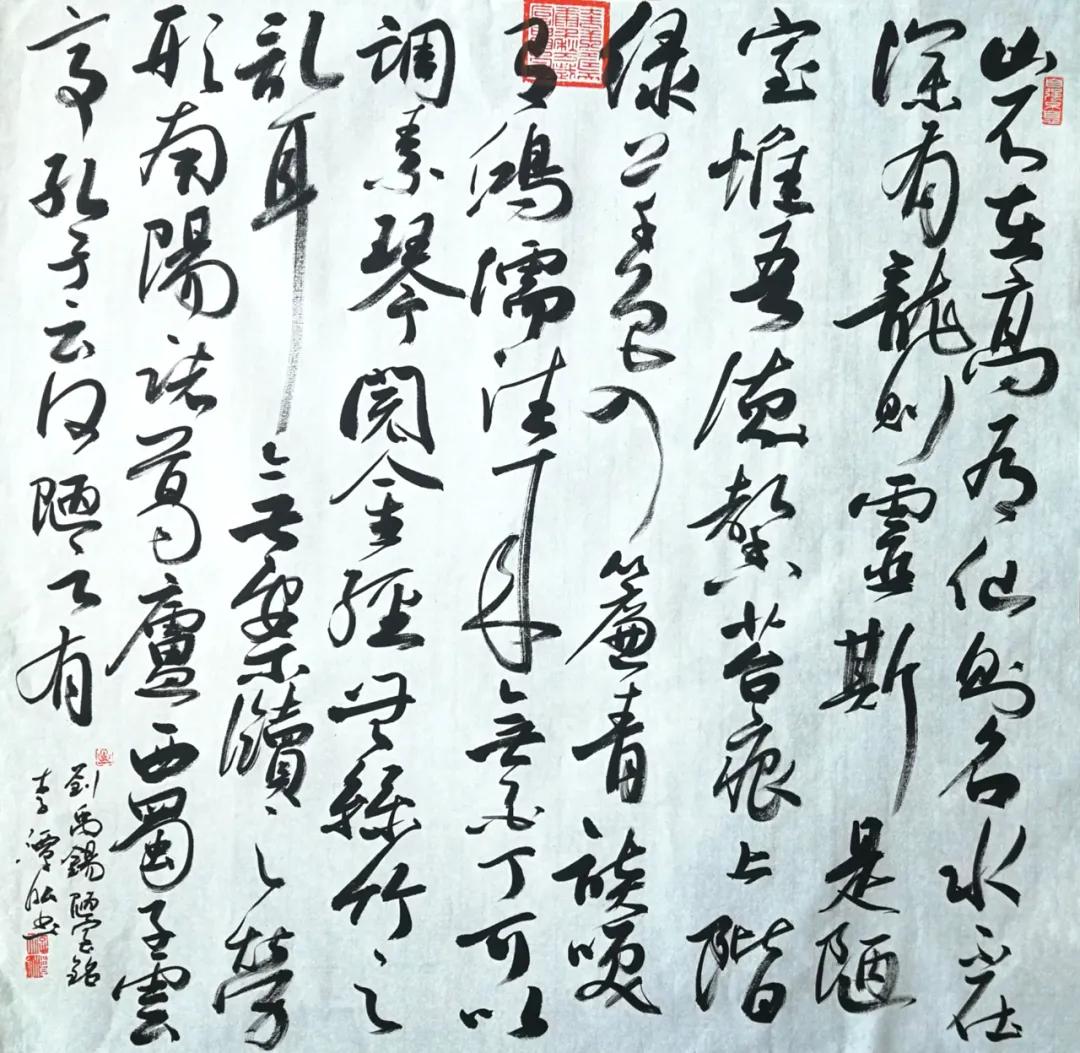 山不在高有仙则名水不在
深有龍则靈斯是陋
室惟吾德馨苔痕上階
绿草色入簾青談咲
有鴻儒往来無白丁可以
調素琴閱金經無絲竹之
乱耳無案牘之勞
形南陽諸葛廬西蜀子雲
亭孔子云何陋之有
劉禹錫陋室銘
李潭书